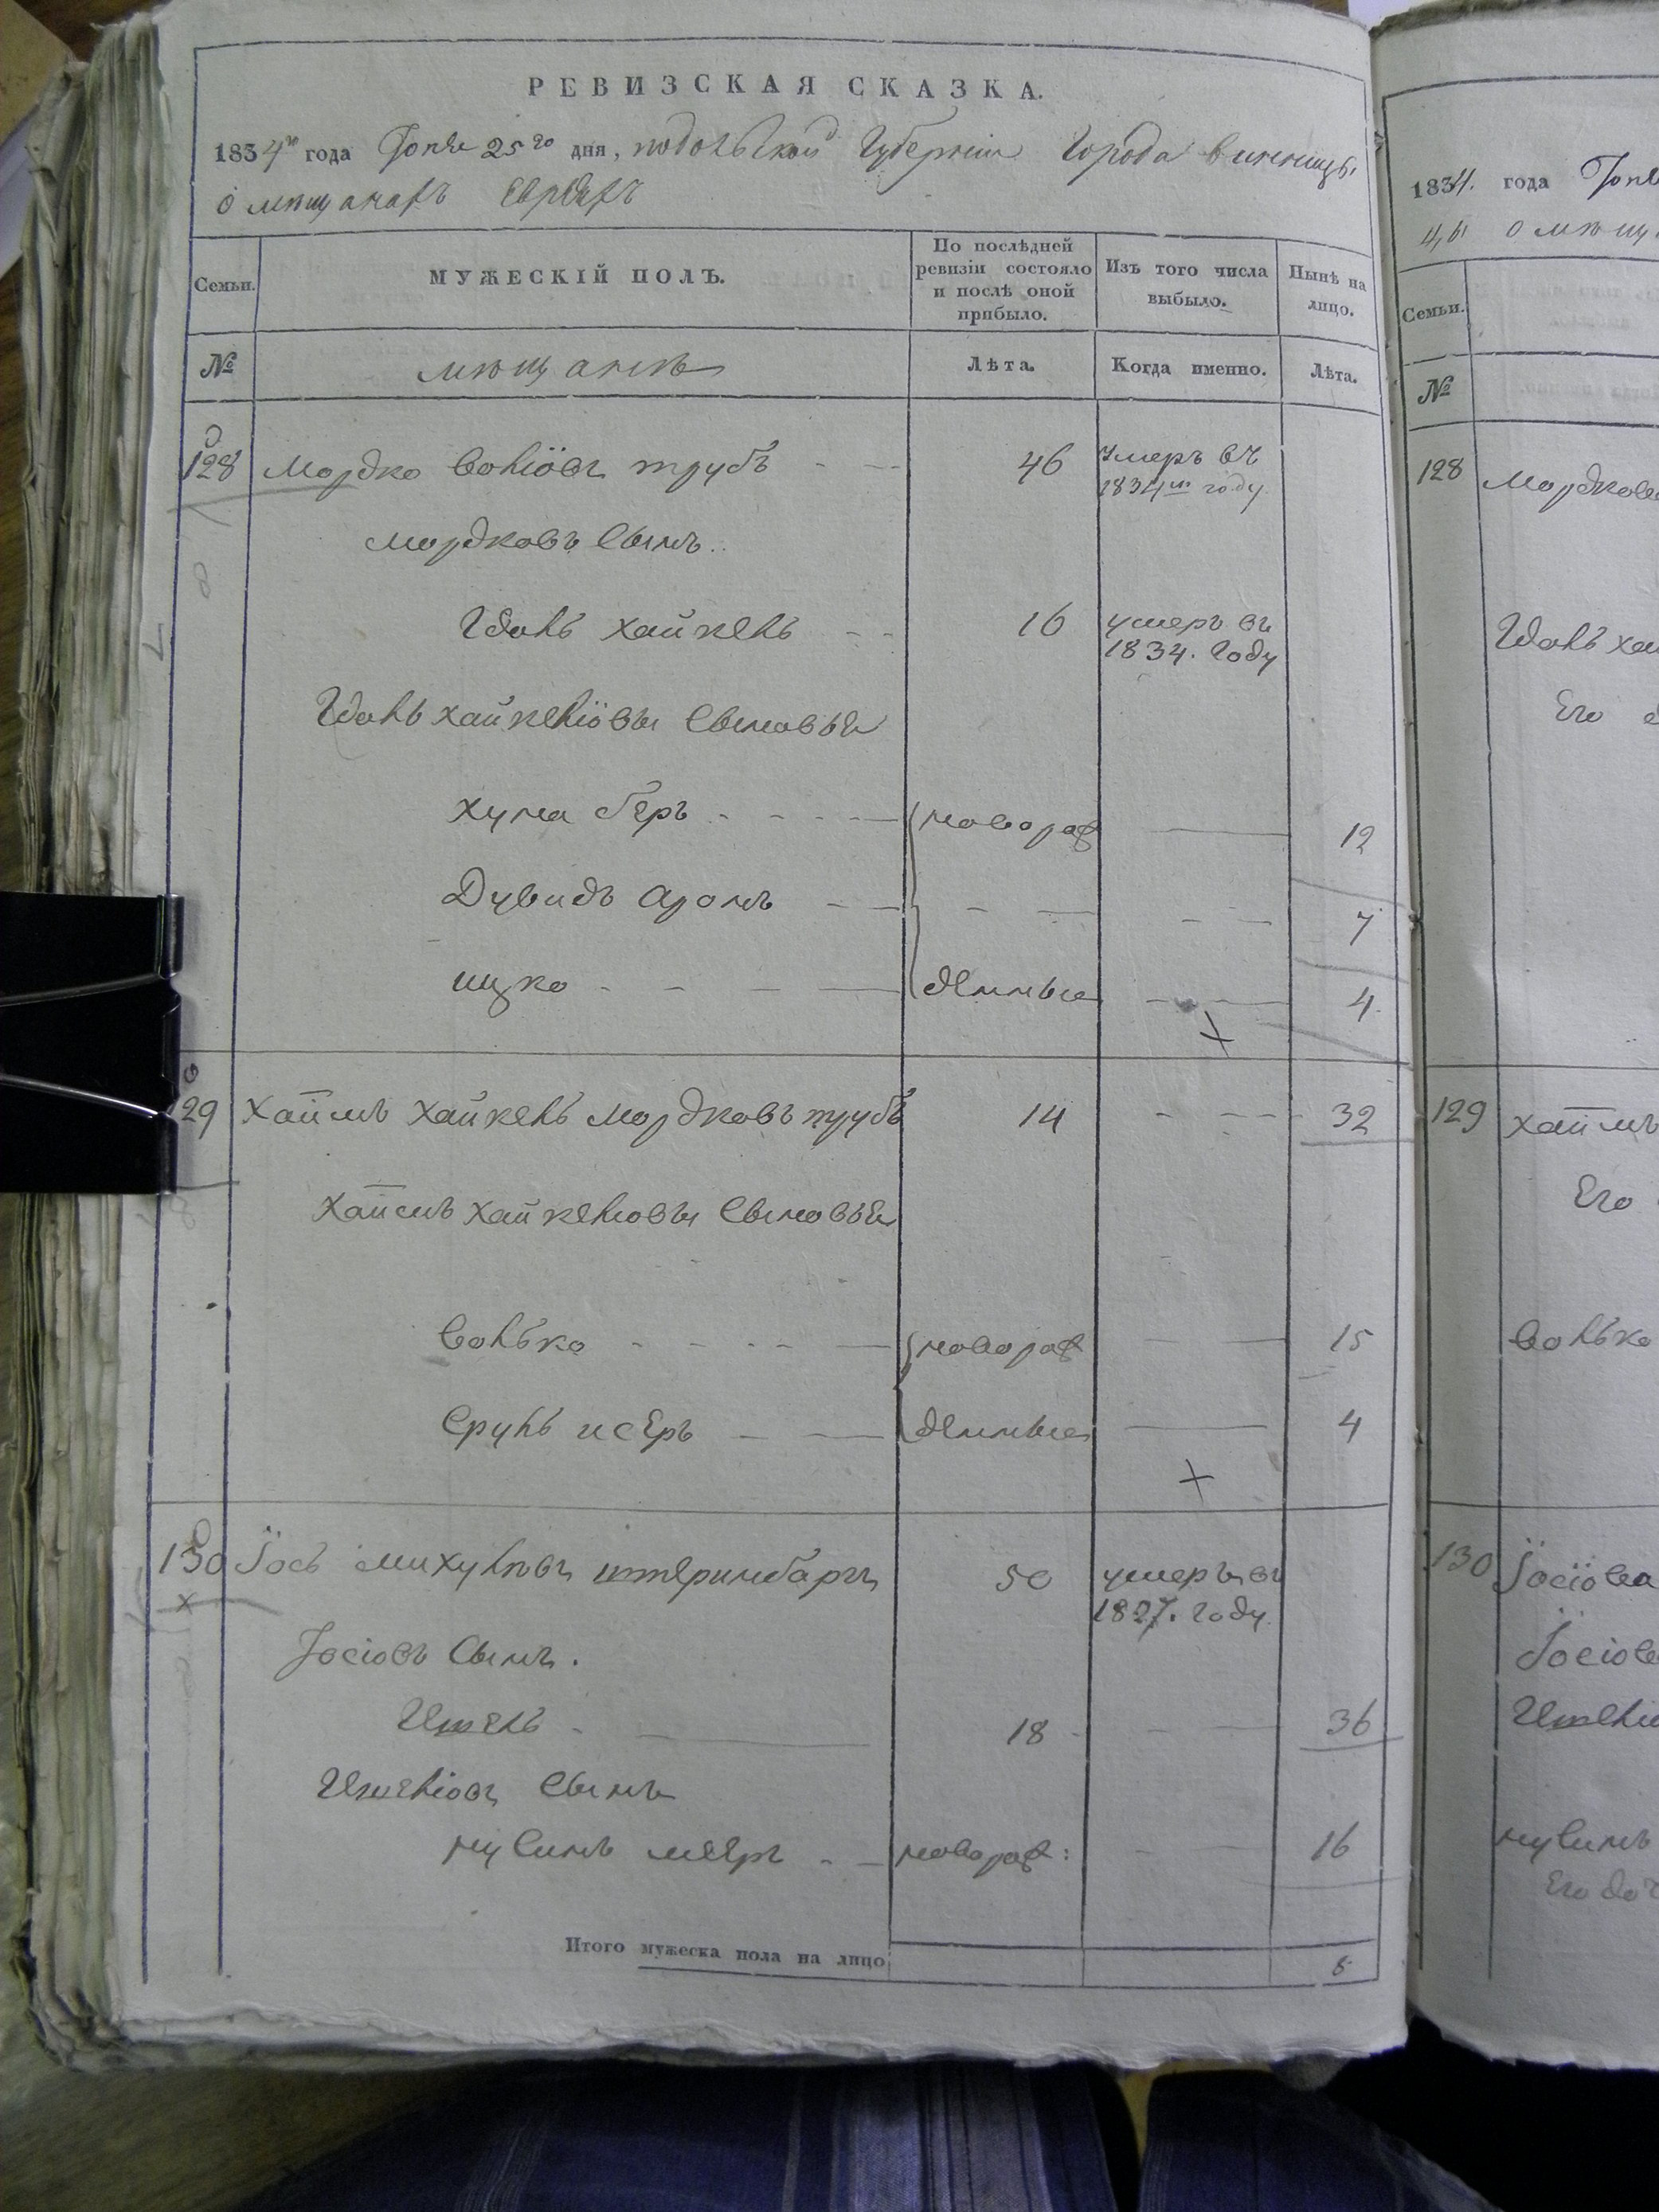 РЕВИЗСКАЯ СКАЗКА.
1834го года Іюня 25го дня, подольской Губерніи Города винницы
о мѣщанахъ Евреяхъ
Семьи. МУЖЕСКІЙ ПОЛЪ. По послѣдней ревизіи состояло и послѣ оной прибыло. Изъ того числа выбыло. Нынѣ на лицо.
№ мѣщане Лѣта. Когда именно. Лѣта.
128 Мордко Волiовъ трубъ 46 умеръ въ
1834м году
Мордковъ Сынъ
Идаль хайкель 16 умеръ въ
1834. Году
Идаль хайкеліовы Сыновья
хуна беръ новорож 12
Дувидъ Аронъ 7
ицко денные 4
29 Хаимъ хайкель Мордковъ трубъ 14 32
Хаимъ хайкелiовы Сыновья
Волько новорож 15
Сруль исеръ денные 4
130 Іось Михулювъ штеринбаргъ 50 умеръ въ
1827. Году
Іосіовъ Сынъ.
Ителъ 18 36
Ителіовъ Сынъ
нусинъ мееръ новорож: 16
Итого мужеска пола на лицо 8
1834. года Іюня
о мѣщ
Семьи.
№
128 Мордкова
Идаль хай
Его
129 хаимъ
Его
Волько
130 Іосіова
Іосіова
Ителіо
нусинъ
Его доч